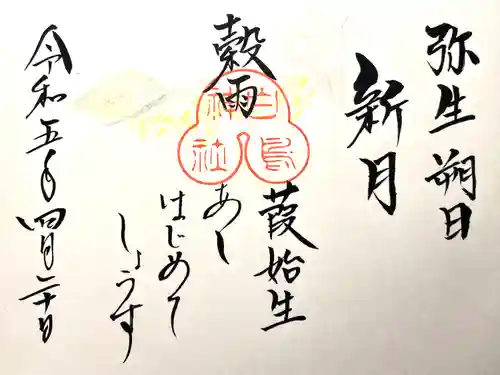 弥生朔日
新月
穀雨
白鳥神社
葭始生
あし
はじめて
しょうず
令和五年四月二十日